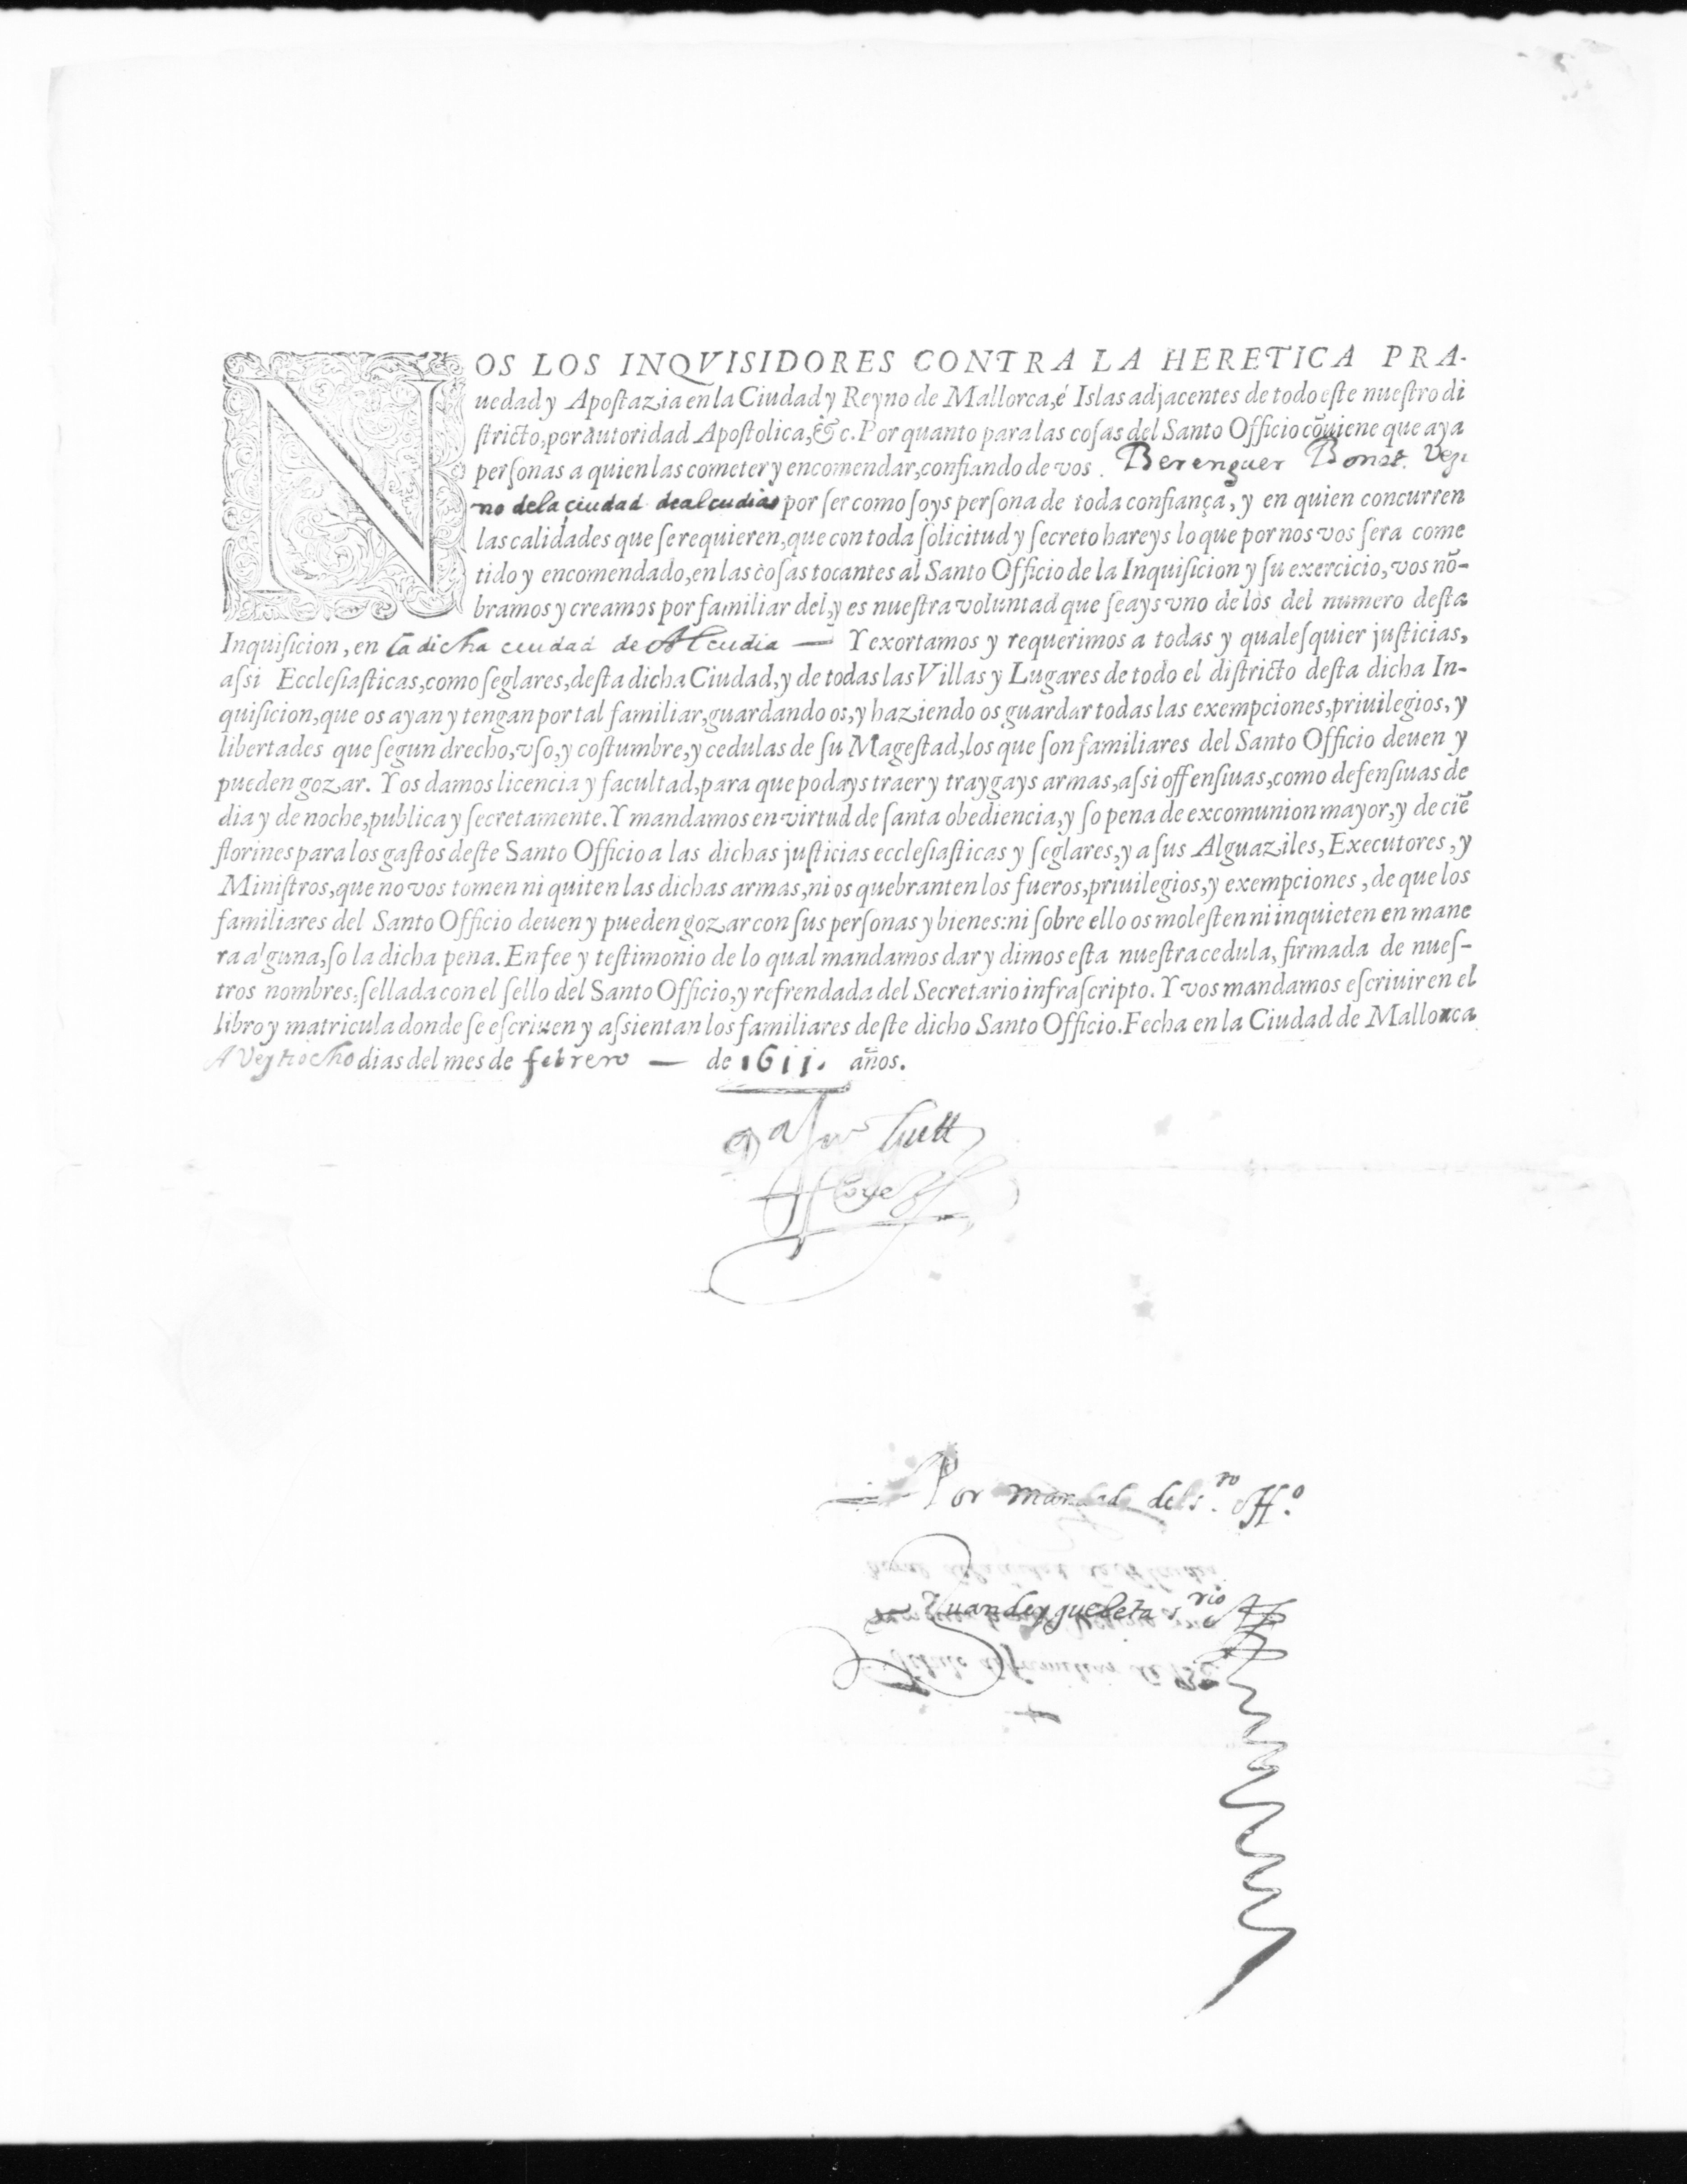 NOS LOS INQVISIDORES CONTRA LA HERETICA PRA-
uedad y Apostazia en la Ciudad y Reyno de Mallorca, é Islas adjacentes de todo este nuestro di
stricto, por autoridad Apostolica, &c. Por quanto para las cosas del Santo Officio cõuiene que aya
personas a quien las cometer y encomendar, confiando de vos. Berenguer Vezi
no de la ciudad de alcudia por ser como soys persona de toda confiança, y en quien concurren
las calidades que se requieren, que con toda solicitud y secreto hareys lo que por nos vos sera come
tido y encomendado, en las cosas tocantes al Santo Officio de la Inquisicion y su exercicio, vos nõ-
bramos y creamos por familiar del, y es nuestra voluntad que seays vno de los del numero desta
Inquisicion, en la dicha ciudad de Alcudia — Y exortamos y requerimos a todas y qualesquier justicias,
assi Ecclesiasticas, como seglares, desta dicha Ciudad, y de todas las Villas y Lugares de todo el districto desta dicha In-
quisicion, que os ayan y tengan por tal familiar, guardando os, y haziendo os guardar todas las exempciones, priuilegios, y
libertades que segun drecho, vso, y costumbre, y cedulas de su Magestad, los que son familiares del Santo Officio deuen y
pueden gozar. Y os damos licencia y facultad, para que podays traer y traygays armas, assi offensiuas, como defensiuas de
dia y de noche, publica y secretamente. Y mandamos en virtud de santa obediencia, y so pena de excomunion mayor, y de ciẽ
florines para los gastos deste Santo Officio a las dichas justicias ecclesiasticas y seglares, y a sus Alguaziles, Executores, y
Ministros, que no vos tomen ni quiten las dichas armas, ni os quebranten los fueros, priuilegios, y exempciones, de que los
familiares del Santo Officio deuen y pueden gozar con sus personas y bienes: ni sobre ello os molesten ni inquieten en mane
ra alguna, so la dicha pena. En fee y testimonio de lo qual mandamos dar y dimos esta nuestra cedula, firmada de nues-
tros nombres, sellada con el sello del Santo Officio, y refrendada del Secretario infrascripto. Y vos mandamos escriuir en el
libro y matricula donde se escriuen y assientan los familiares deste dicho Santo Officio. Fecha en la Ciudad de Mallorca
A veytiocho dias del mes de febrero — de 1611. años.
Por mandado del s.to off.o